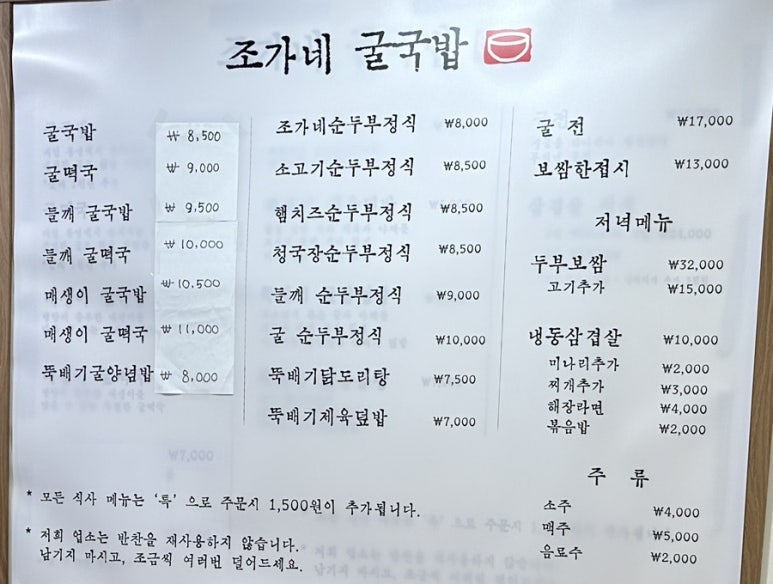 조가네 굴국밥
굴국밥 ₩ 8,500
굴떡국 ₩ 9,000
들깨 굴국밥 ₩ 9,500
들깨 굴떡국 ₩ 10,000
매생이 굴국밥 ₩ 10,500
매생이 굴떡국 ₩ 11,000
뚝배기굴양념밥 ₩ 8,000
조가네순두부정식 ₩8,000
소고기순두부정식 ₩8,500
햄치즈순두부정식 ₩8,500
청국장순두부정식 ₩8,500
들깨 순두부정식 ₩9,000
굴 순두부정식 ₩10,000
뚝배기닭도리탕 ₩7,500
뚝배기제육덮밥 ₩7,000
굴 전 ₩17,000
보쌈한접시 ₩13,000
저녁메뉴
두부보쌈 ₩32,000
고기추가 ₩15,000
냉동삼겹살 ₩10,000
미나리추가 ₩2,000
찌개추가 ₩3,000
해장라면 ₩4,000
볶음밥 ₩2,000
주 류
소주 ₩4,000
맥주 ₩5,000
음료수 ₩2,000
* 모든 식사 메뉴는 '특' 으로 주문시 1,500원이 추가됩니다.
* 저희 업소는 반찬을 재사용하지 않습니다.
남기지 마시고, 조금씩 여러번 덜어드세요.